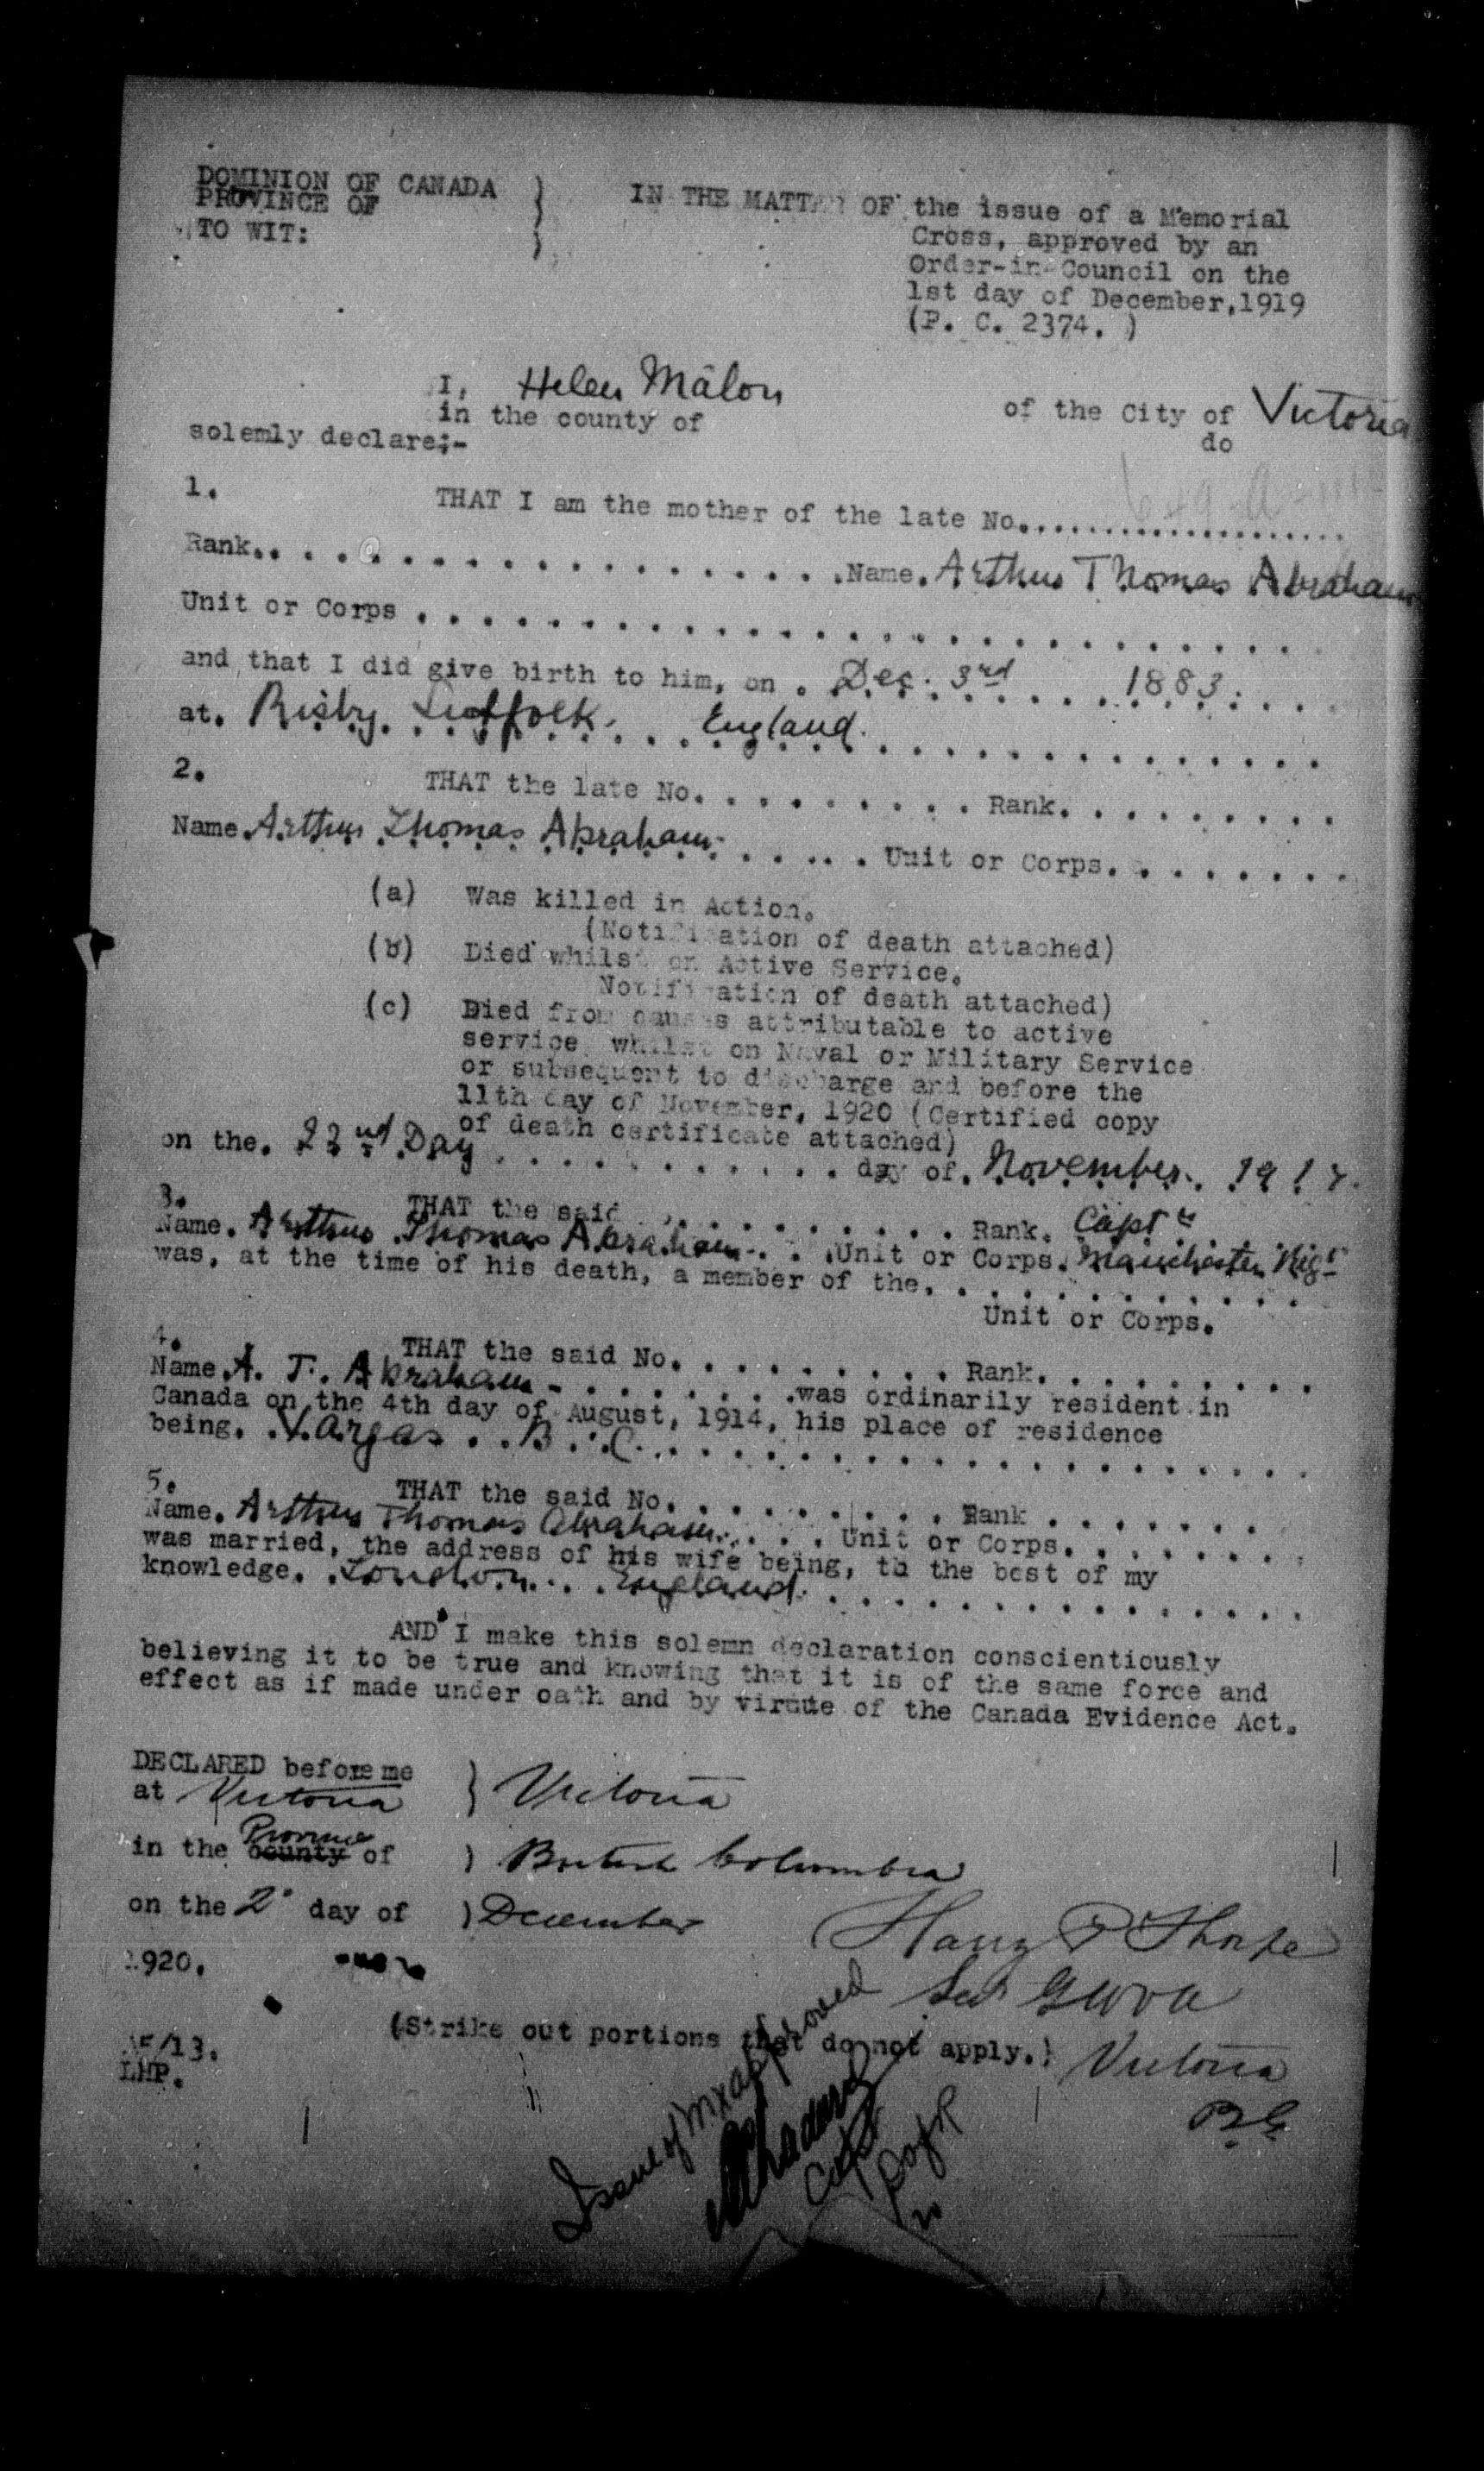 DOMINION OF CANADA )
PROVINCE OF )
TO WIT: )
IN THE MATTER OF the issue of a Memorial
Cross, approved by an
Order-in-Council on the
1st day of December,1919
(P. C. 2374. )
I, Helen Malon of the City of Victoria
in the county of do
solemly declare;-
1. THAT I am the mother of the late No.....................
Rank. . . . . . . . . . . . . . . . . . Name. Arthur Thomas Abraham
Unit or Corps . . . . . . . . . . . . . . . . . . . . . . . .
and that I did give birth to him, on . Dec. 3rd 1883.
at. Risby. Suffolk. England.
2. THAT the late No. . . . . . . . . . Rank. . . . . . . . .
Name Arthur Thomas Abraham . . . . . . Unit or Corps. . . . . . . .
(a) Was killed in Action.
(Notification of death attached)
(b) Died whilst on Active Service.
Notification of death attached)
(c) Died from causes attributable to active
service whilst on Naval or Military Service
or subsequent to discharge and before the
11th day of November, 1920 (Certified copy
of death certificate attached)
on the. 22nd Day . . . . . . . . . . . day of. November. 191
3. THAT the said . . . . . . . . . . . Rank. Capt
Name. Arthur Thomas Abraham . . . Unit or Corps. Manchester Regt
was, at the time of his death, a member of the. . . . . . . . . . .
Unit or Corps.
4. THAT the said No. . . . . . . . . . Rank. . . . . . . . .
Name A. T. Abraham . . . . . . . was ordinarily resident in
Canada on the 4th day of August, 1914, his place of residence
being. Vargas . . B. C. . . . . . . . . . . . . . . . .
5. THAT the said No. . . . . . . . . . Rank . . . . . . .
Name. Arthur Thomas Abraham . . . . Unit or Corps. . . . . . . .
was married, the address of his wife being, to the best of my
knowledge. London . . . England. . . . . . . . . . . . . .
AND I make this solemn declaration conscientiously
believing it to be true and knowing that it is of the same force and
effect as if made under oath and by virtue of the Canada Evidence Act.
DECLARED before me
at Victoria ) Victoria
in the county Province of ) British Columbia
on the 2 day of ) December
1920.
Harry P Thorpe
Sec GWVA
Victoria
B.C.
(Strike out portions that do not apply.)
/13.
LHP.
Issue of approved
Capt